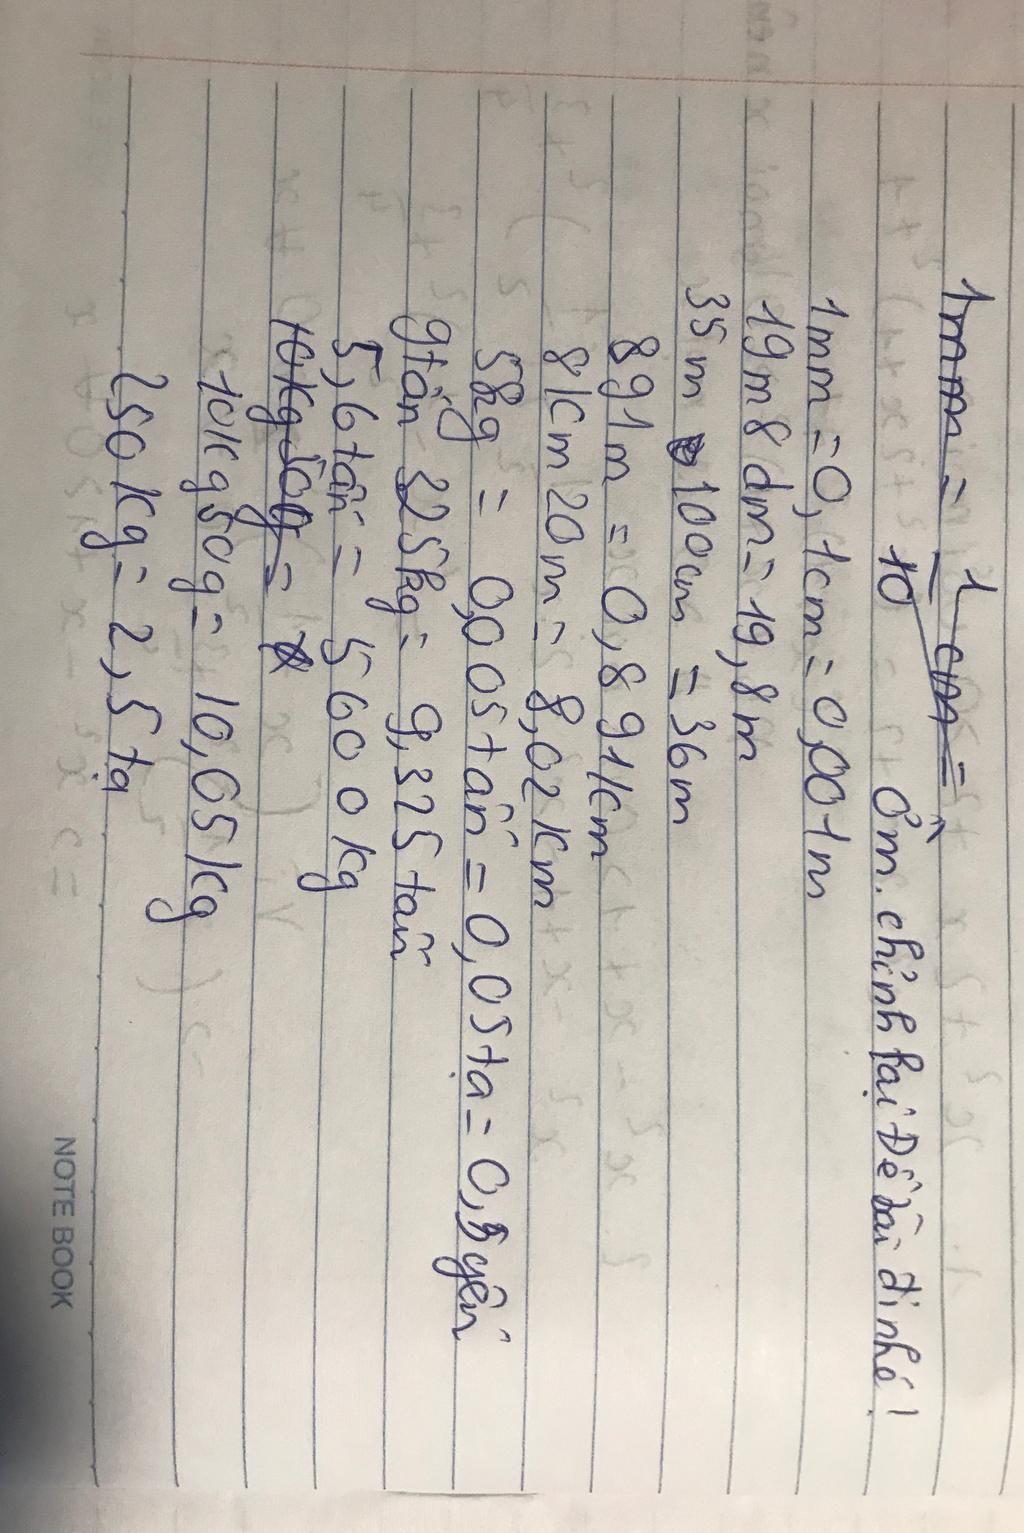 1mm = 1/10 cm =
Ôm. chỉnh lại Đề bài đi nhé!
1mm = 0,1cm = 0,001m
19m 8dm = 19,8m
35m 100cm = 36m
891m = 0,891km
8km 20m = 8,02km
5kg = 0,005 tấn = 0,05 tạ = 0,5 yến
9 tấn 325kg = 9,325 tấn
5,6 tấn = 5600kg
10kg 50g =
10kg 50g = 10,05kg
250kg = 2,5 tạ
NOTE BOOK